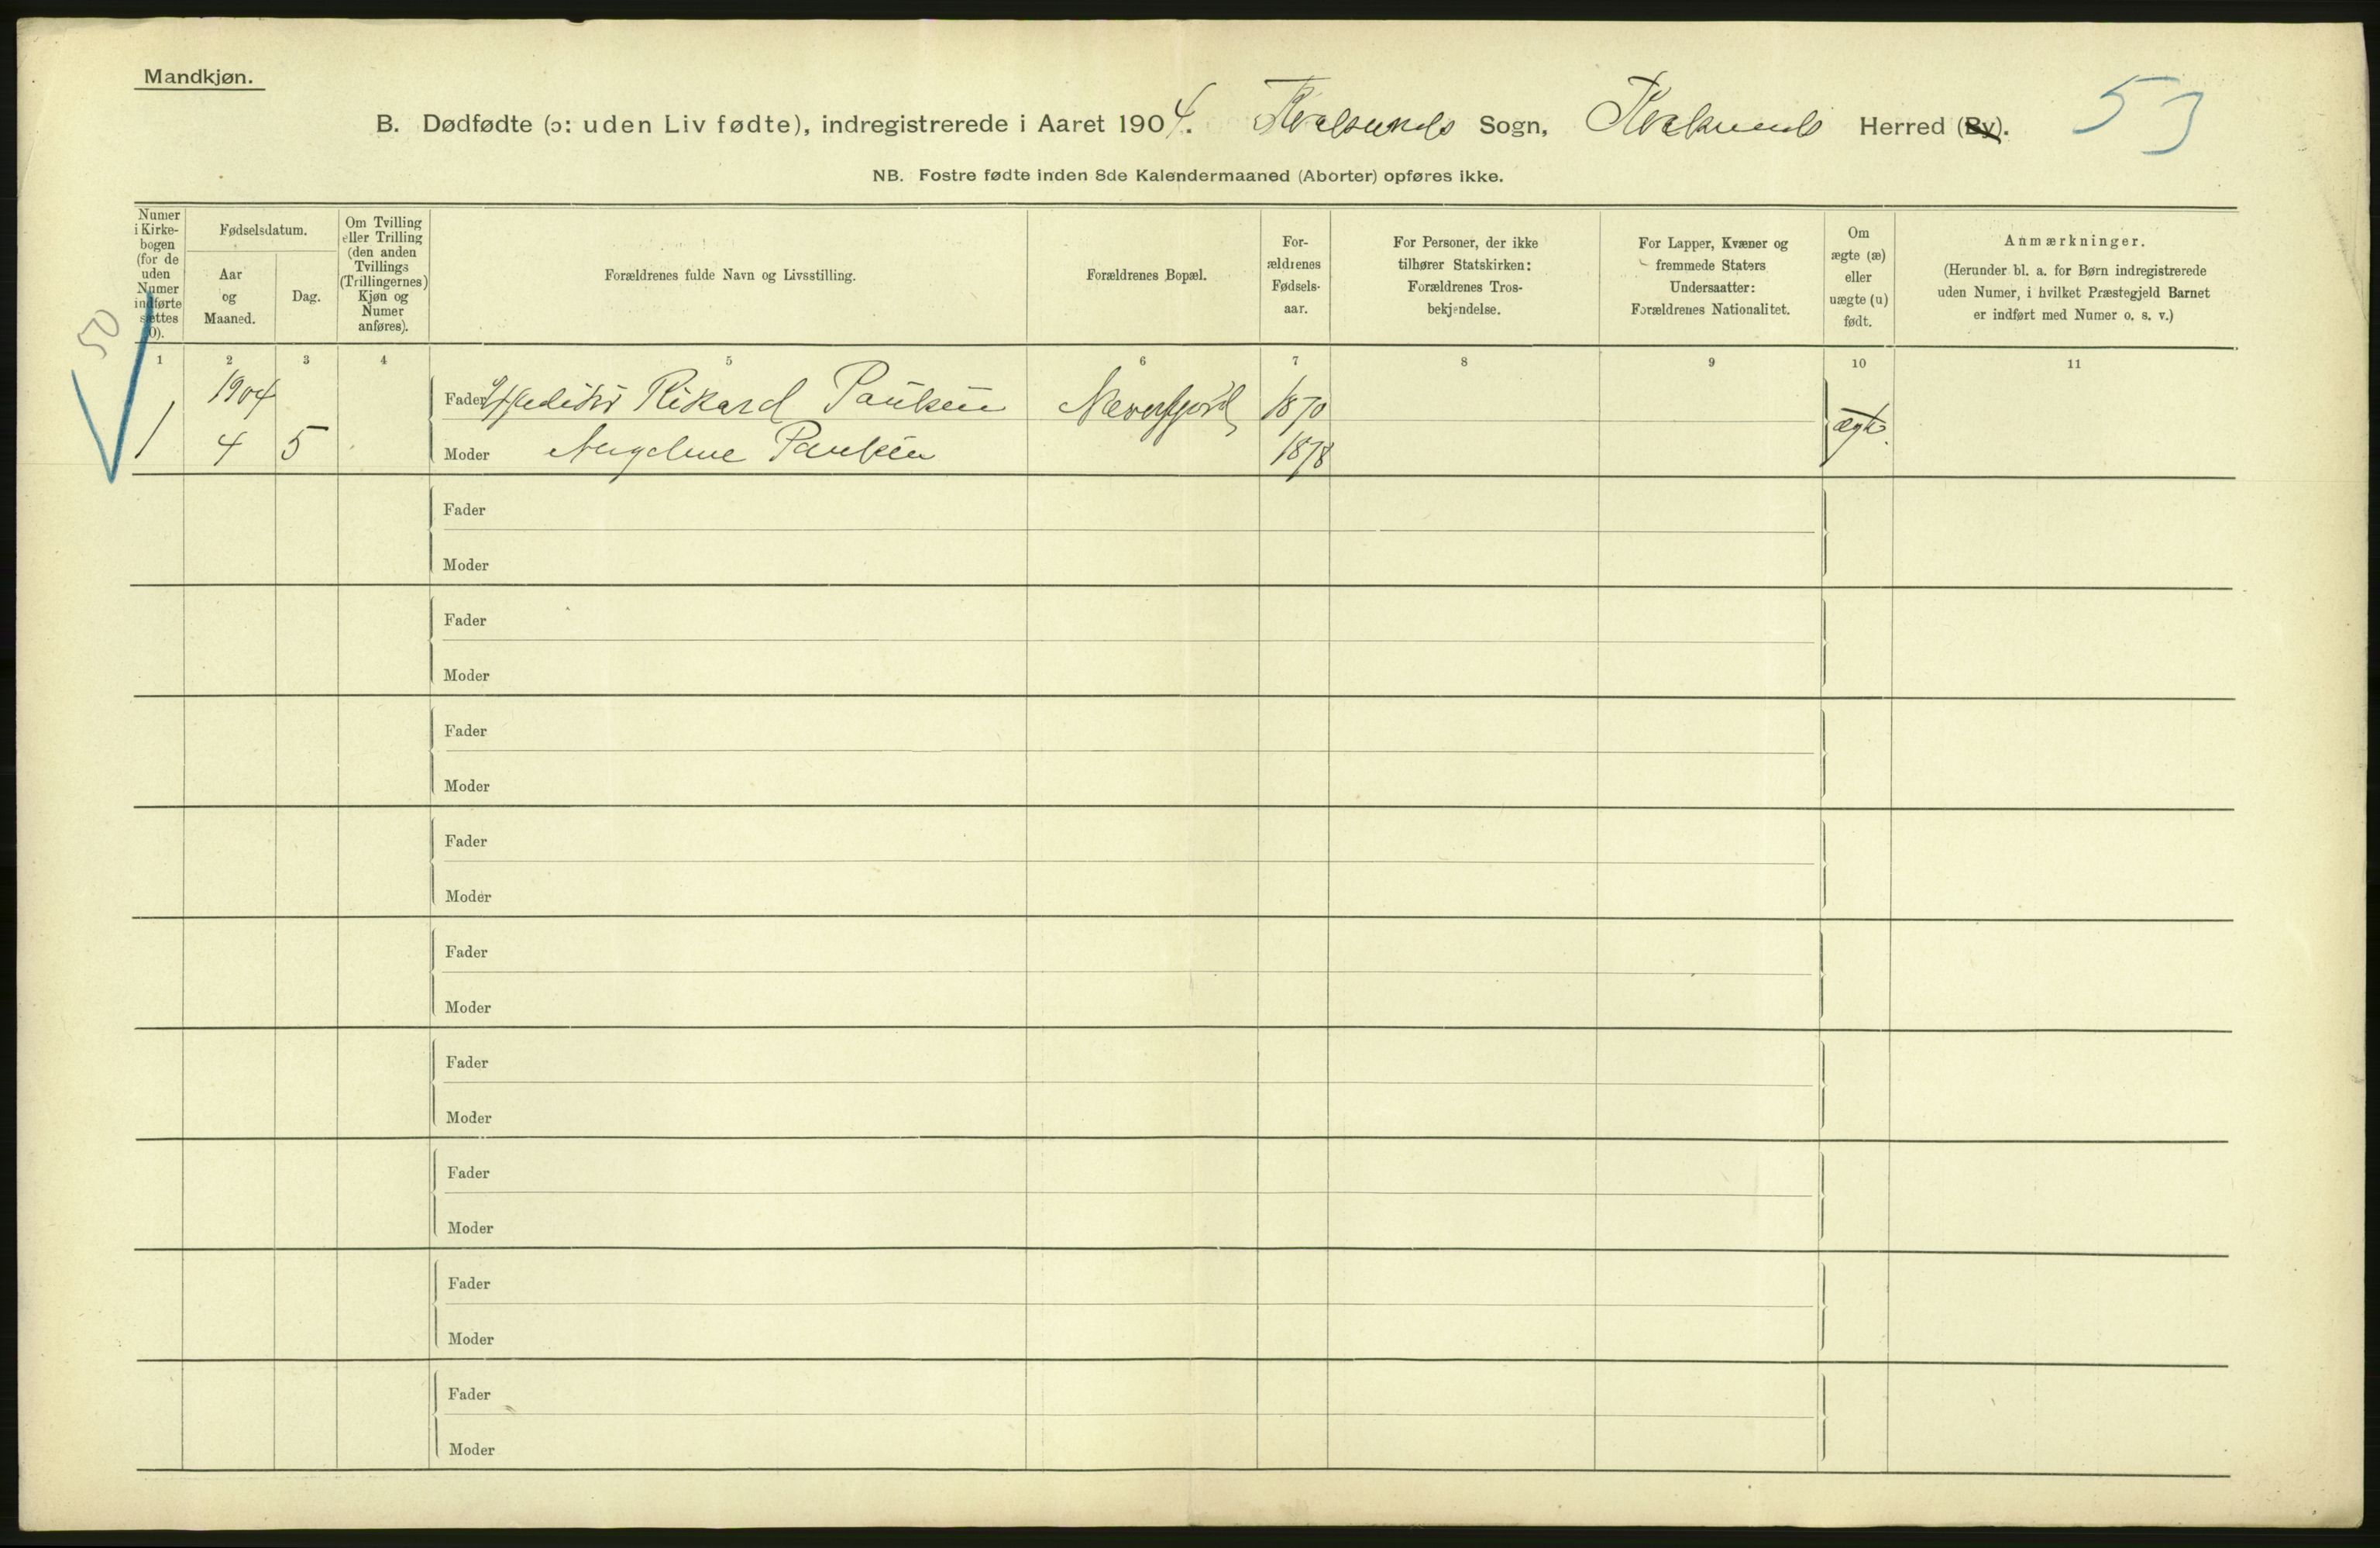 Mandkjøn.
B. Dødfødte (ɔ: uden Liv fødte), indregistrerede i Aaret 1904. Kvalsunds Sogn, Kvalsunds Herred (By). 53
NB. Fostre fødte inden 8de Kalendermaaned (Aborter) opføres ikke.
Numer i Kirke-
bogen
(for de
uden
Numer
indførte
sættes
0).
Fødselsdatum.
Aar
og
Maaned.
Dag.
Om Tvilling
eller Trilling
(den anden
Tvillings
(Trillingernes)
Kjøn og
Numer
anføres).
Forældrenes fulde Navn og Livsstilling.
Forældrenes Bopæl.
For-
ældrenes
Fødsels-
aar.
For Personer, der ikke
tilhører Statskirken:
Forældrenes Tros-
bekjendelse.
For Lapper, Kvæner og
fremmede Staters
Undersaatter:
Forældrenes Nationalitet.
Om
ægte (æ)
eller
uægte (u)
født.
Anmærkninger.
(Herunder bl. a. for Børn indregistrerede
uden Numer, i hvilket Præstegjeld Barnet
er indført med Numer o. s. v.)
50
1 2 3 4 5 6 7 8 9 10 11
1904
Fader Rikard Paulsen Næverfjord 1870
1 4 5 Moder Paulsen 1878 ægte
Fader
Moder
Fader
Moder
Fader
Moder
Fader
Moder
Fader
Moder
Fader
Moder
Fader
Moder
Fader
Moder
Fader
Moder